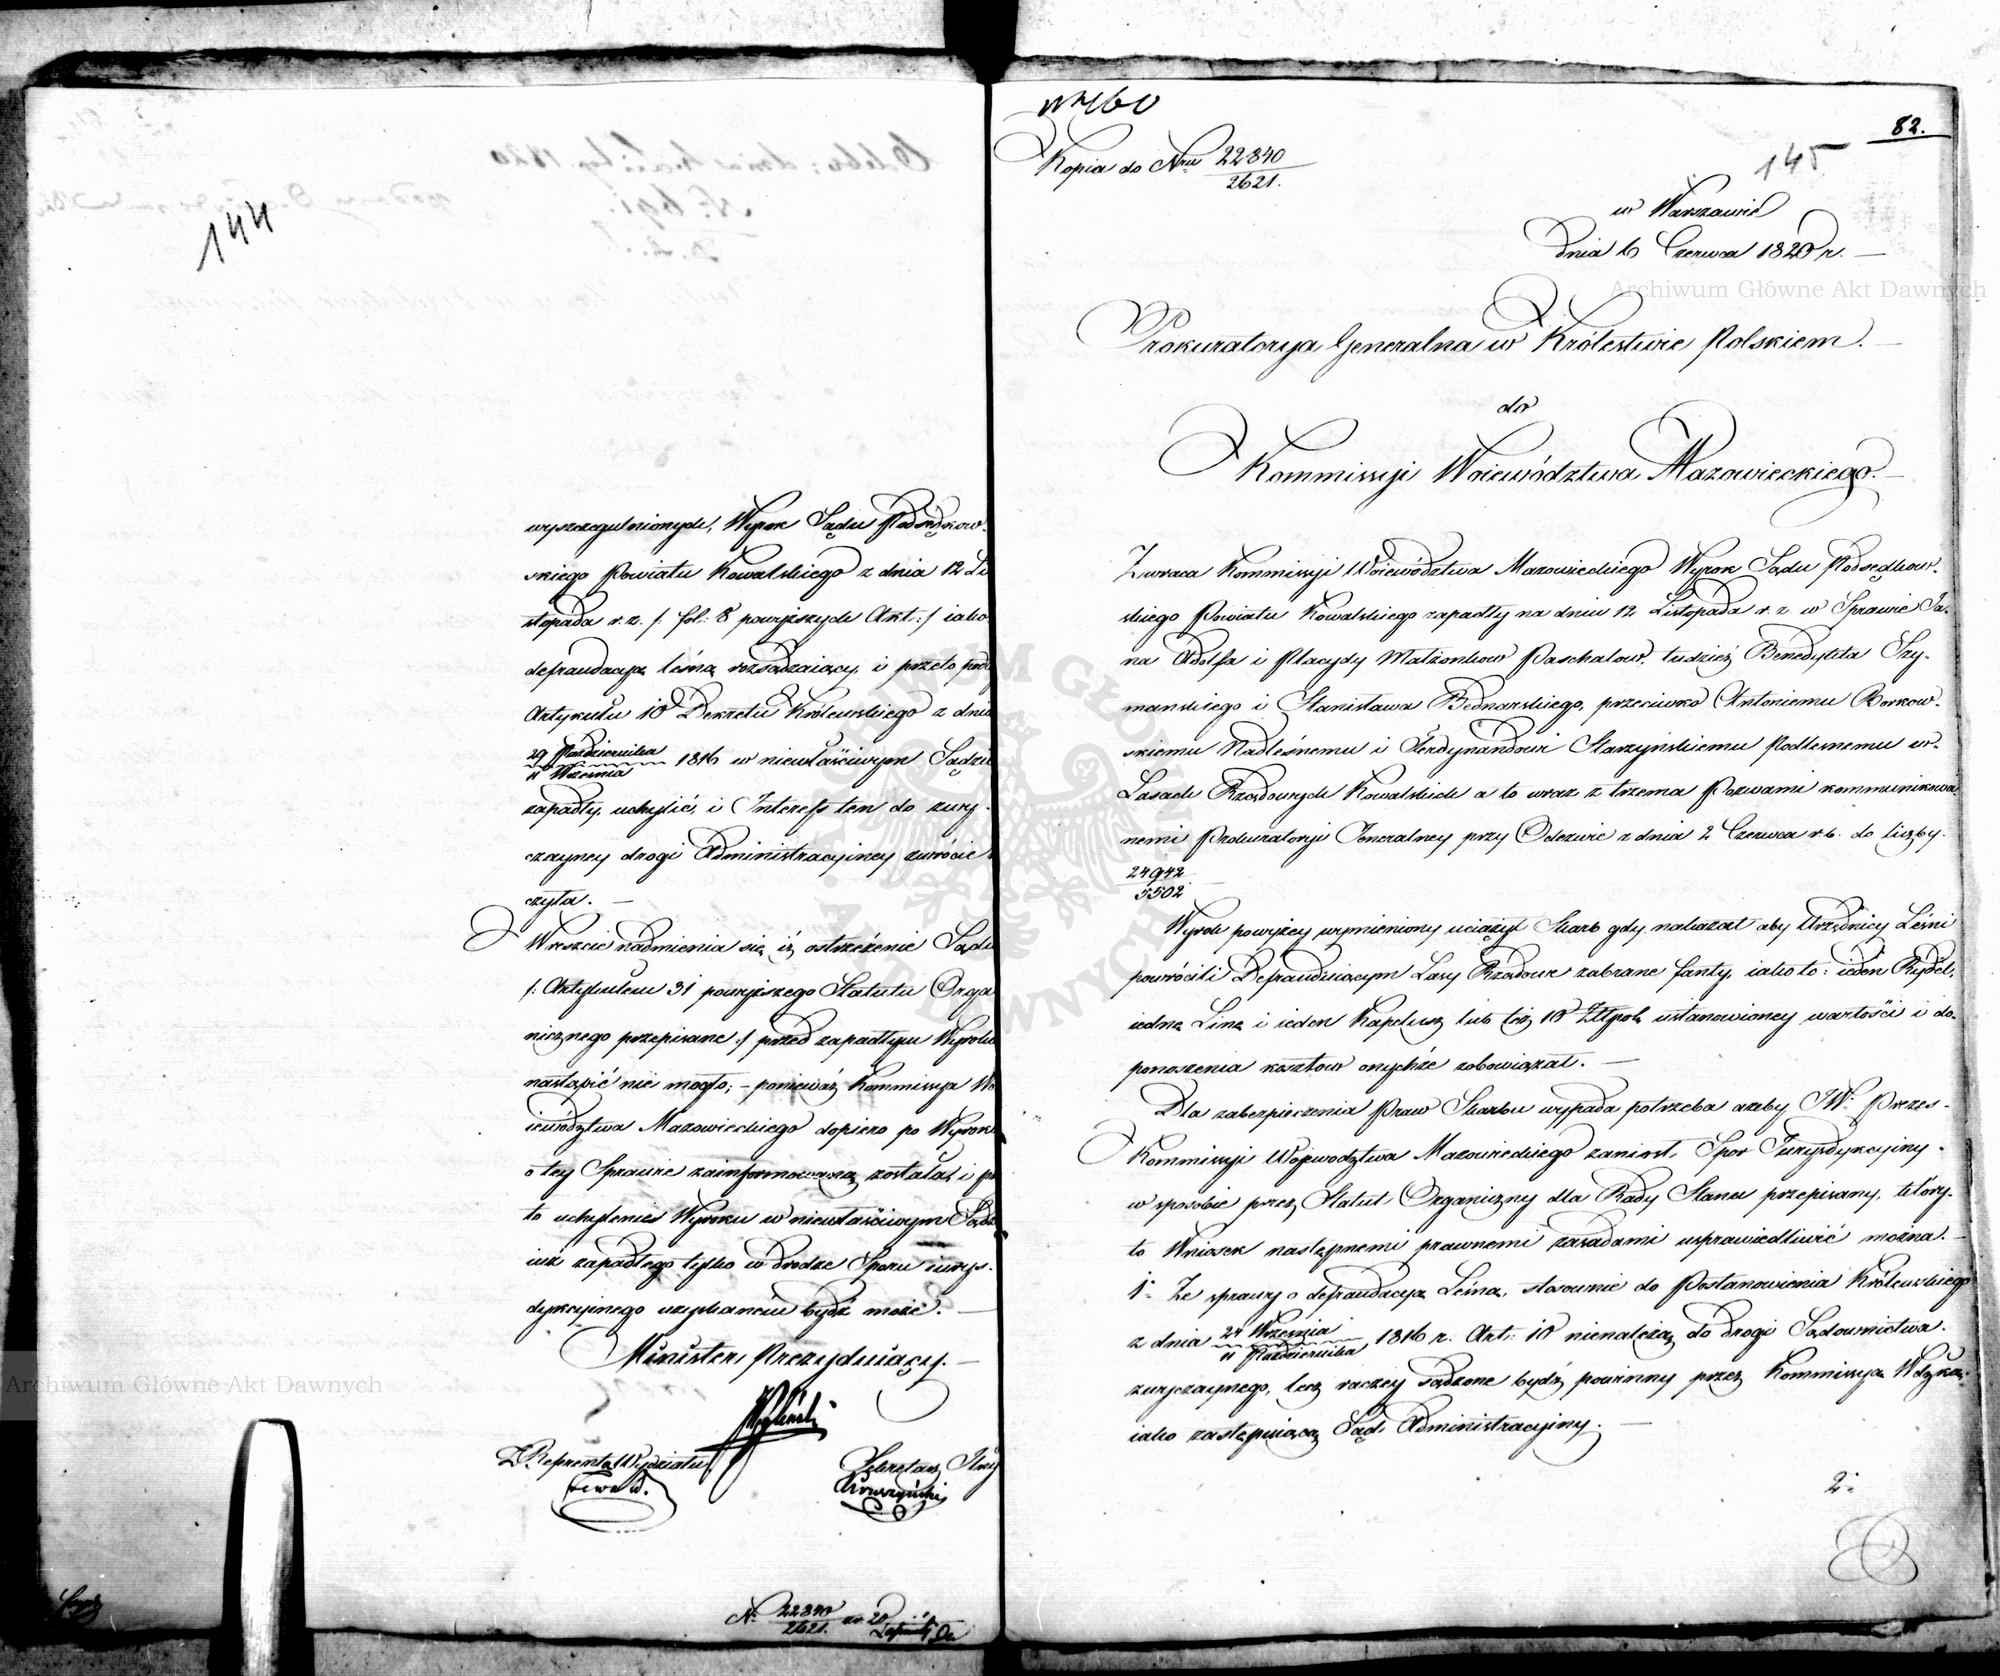 144
wyszczegulnionych, Wyrok Sądu Podsędkow-
skiego Powiatu Kowalskiego z dnia 12 Li
stopada r. z. /: fol: 8 powyższych Akt :/ iako
defraudacyą leśną rozsądzaiący, i przeto podł
Artykułu 10 Dekretu Królewskiego z dnia
29 Października
11 Września
1816 w niewłaściwym Sądzie
zapadły, uchylić, i Interess ten do zwy-
czayney drogi Administracyiney zwrócić
czyła. —
Wreszcie nadmienia się iż ostrzeżenie Sądu
/: Artykułem 31 powyższego Statutu Orga
nicznego przepisane :/ przed zapadłym Wyrokie
nastąpić nie mogło; – ponieważ Kommissya Wo
iewództwa Mazowieckiego dopiero po Wyroku
o tey Sprawie zainformowaną została, i prze
to uchylenie Wyroku w niewłaściwym Sądz
iuż zapadłego tylko w drodze Sporu iurys-
dykcyinego uzyskanem bydź może. —
Minister Prezyduiący. —
Z. Reprent. Wydziału
Sekretarz Jlny
N: 22840
2621.
Nr 160
82.
Kopia do Nru 22840
2621.
145
w Warszawie
Dnia 6 Czerwca 1820 r. —
Prokuratorya Generalna w Królestwie Polskiem. —
do
Kommissyi Woiewództwa Mazowieckiego. —
Zwraca Kommissyi Woiewództwa Mazowieckiego Wyrok Sądu Podsędkow-
skiego Powiatu Kowalskiego zapadły na dniu 12 Listopada r. z. w Sprawie Ja-
na Adolfa i Placydy Małżonkow Paschalow, tudzież Benedykta Szy-
manskiego i Stanisława Bednarskiego, przeciwko Antoniemu Borkow-
skiemu Nadleśnemu i Ferdynandowi Starzyńskiemu Podlesnemu w-
Lasach Rządowych Kowalskich a to wraz z trzema Pozwami kommunikowa-
nemi Prokuratoryi Jeneralney przy Odezwie z dnia 2 Czerwca r. b. do liczby.
24942
5502
Wyrok powyżey wymieniony uciążył Skarb gdy nakazał aby Urzędnicy Leśni
powrócili Defrauduiącym Lasy Rządowe zabrane fanty, iako to: ieden Rydel,
iedną Linę i ieden Kapelusz lub też 10 Złtpols ustanowioney wartości i do-
ponoszenia kosztow onychże zobowiązał. —
Dla zabezpieczenia Praw Skarbu wypada potrzeba ażeby JW: Prezes-
Kommissyi Wojewodztwa Mazowieckiego zaniosł, Spor Jurysdykcyiny-
w sposobie przez Statut Organiczny dla Rady Stanu przepisany, który-
to Wniosek następnemi prawnemi zasadami usprawiedliwić można. —
1° Ze sprawy o defraudacyą Leśną, stosownie do Postanowienia Królewskiego
z dnia 29 Września
11 Października
1816 r. Art: 10 nienależą do drogi Sądownictwa
zwyczaynego, lecz raczey sądzone bydź powinny przez Kommissyą Wdzką
iako zastępuiącą Sąd Administracyiny. —
2°